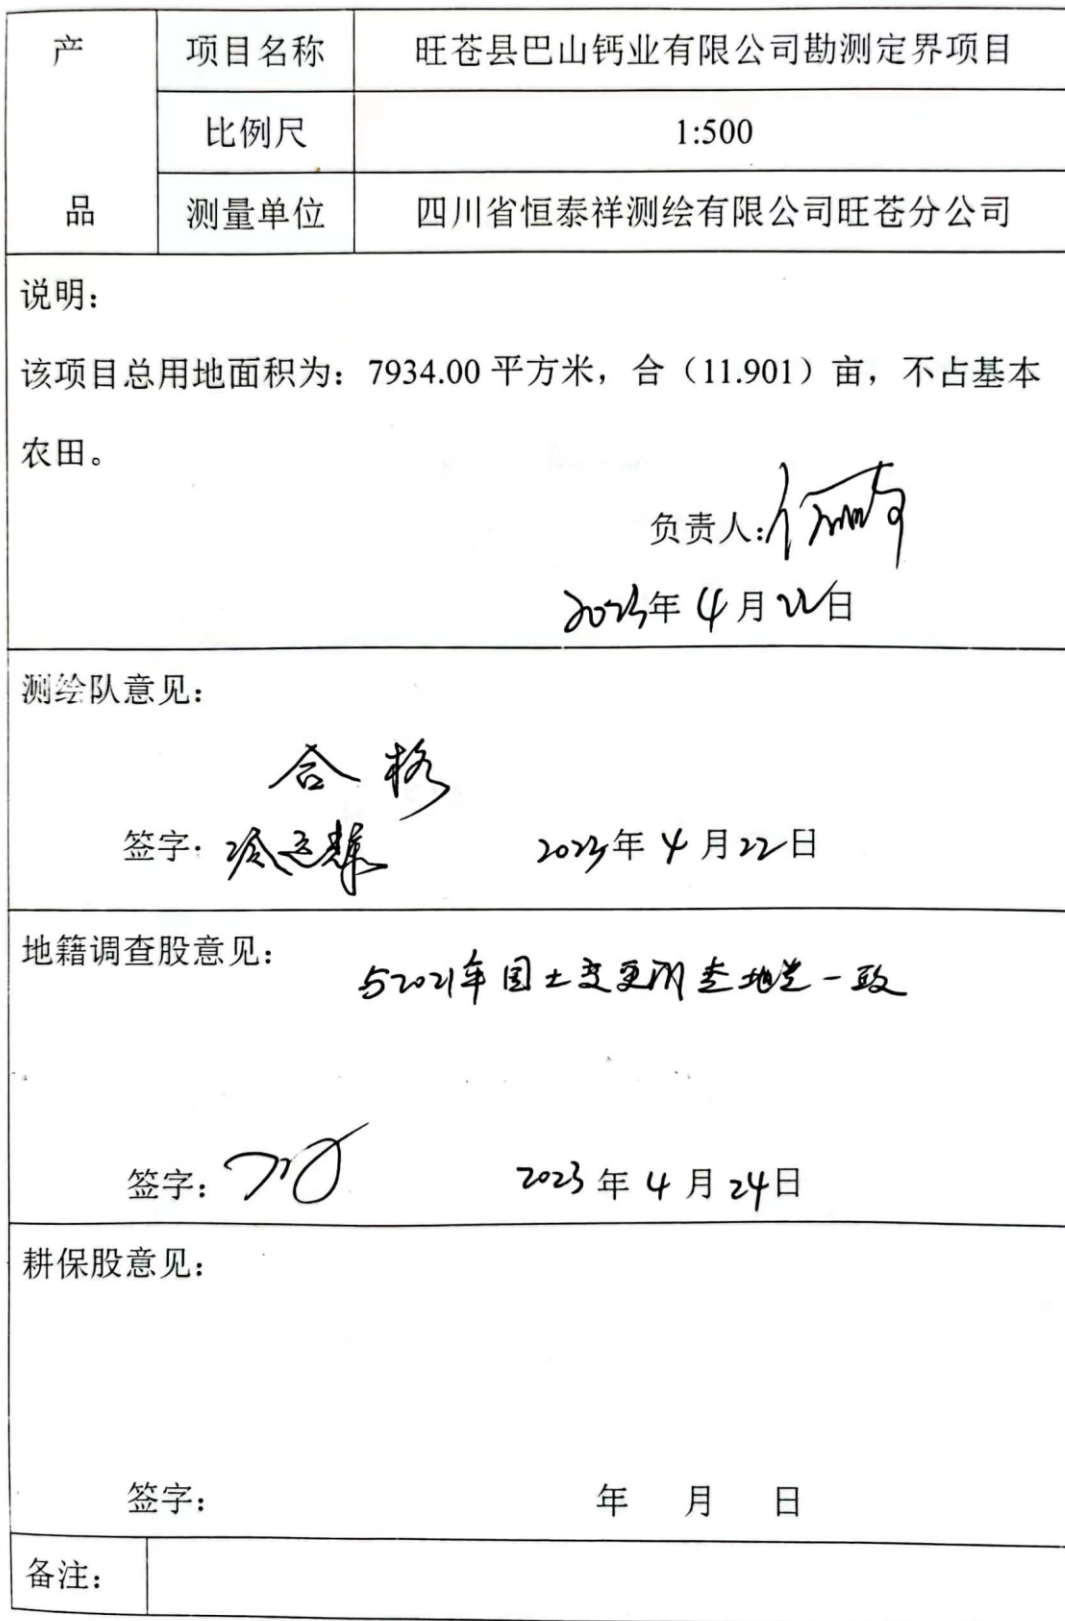 产 项目名称 旺苍县巴山钙业有限公司勘测定界项目
比例尺 1:500
品 测量单位 四川省恒泰祥测绘有限公司旺苍分公司
说明：
该项目总用地面积为：7934.00 平方米，合（11.901）亩，不占基本
农田。
负责人:
2023年 4 月 22日
测绘队意见：
合格
签字： 2023年 4 月 22日
地籍调查股意见：
与2021年国土变更调查地类一致
签字： 2023 年 4 月 24日
耕保股意见：
签字： 年 月 日
备注：